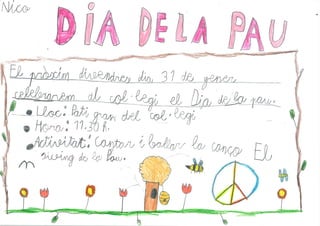 Nico
DIA DE LA PAU
El pròxim divendres dia 31 de gener
celebrarem al col·legi el Dia de la pau.
• Lloc: Pati gran del col·legi
• Hora: 11:30 h.
• Activitat: Cantar i ballar la canço El
swing de la Pau.